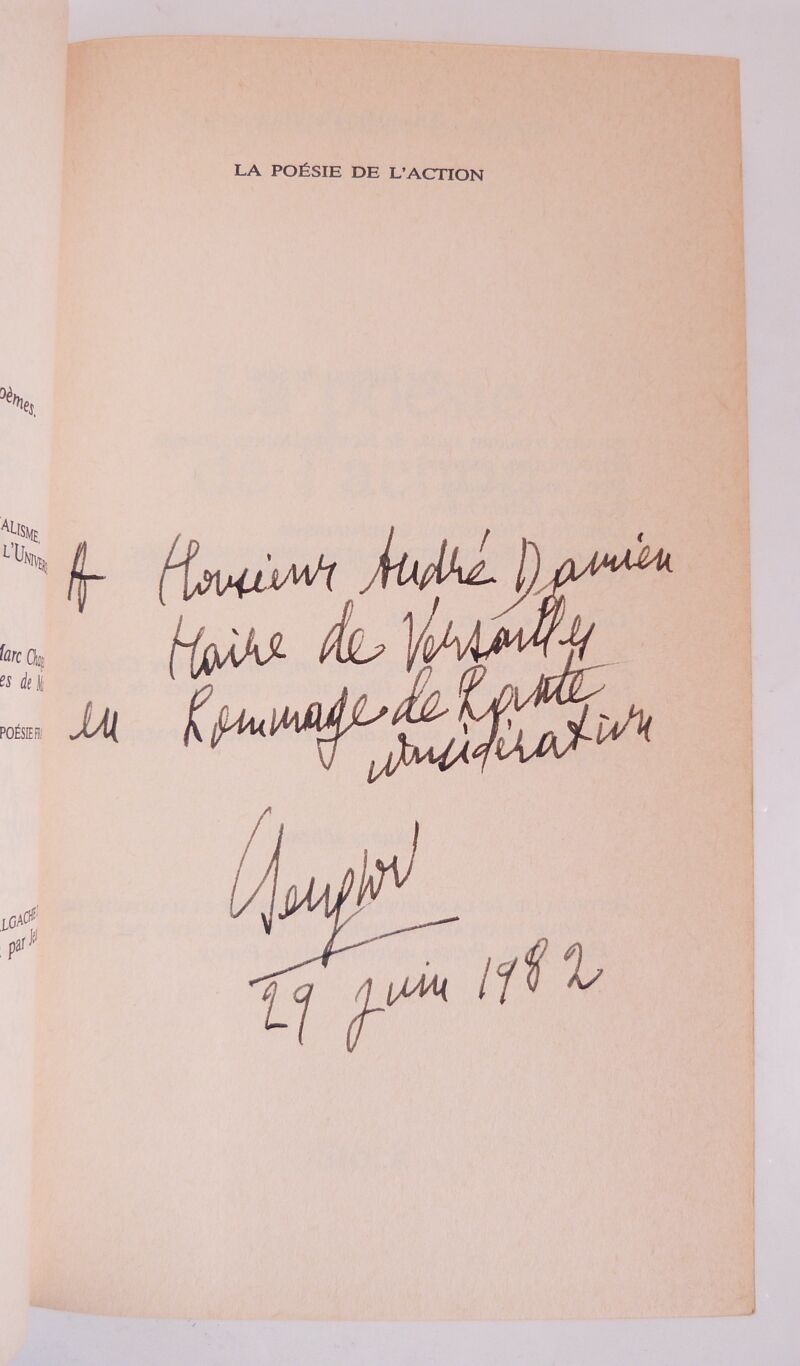 LA POÉSIE DE L'ACTION
A Monsieur André Damien
Maire de Versailles
en hommage de haute
considération
Senghor
29 juin 1982
oèmes.
ALISME,
L'UNIVER
Marc Chag
es de M
POÉSIE FR
LGACHE
par Je